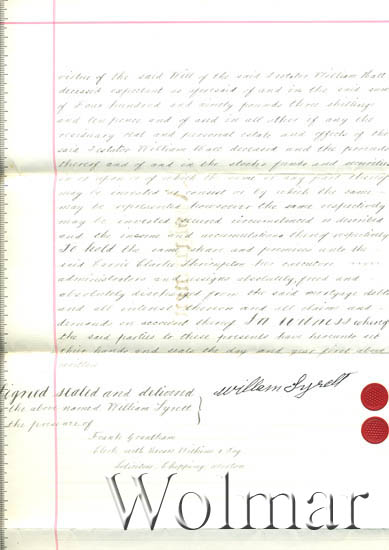 virtue of the said Will of the said Testator William Hall
deceased expectant as aforesaid of and in the said sum
of Four hundred and ninety pounds three shillings
and ten pence and of and in all other if any the
residuary real and personal estate and effects of the
said Testator William Hall deceased and the proceeds
thereof and of and in the stocks funds and securities
in or upon of which the same or any part thereof
may be invested or consist or by which the same
may be represented howsoever the same respectively
may be invested secured circumstanced or described
and the income and accumulations thereof respectively
To hold the same share and premises unto the
said Clarke Thrimpton her executors
administrators and assigns absolutely freed and
absolutely discharged from the said mortgage debt
and all interest thereon and all claim and
demand on account thereof In witness whereof
the said parties to these presents have hereunto set
their hands and seals the day and year first above
written
Signed sealed and delivered
the above named William Syrett
the presence of
William Syrett
Frank Grantham
Clerk with Wilkins &
Solicitors Chipping Norton
Wolmar